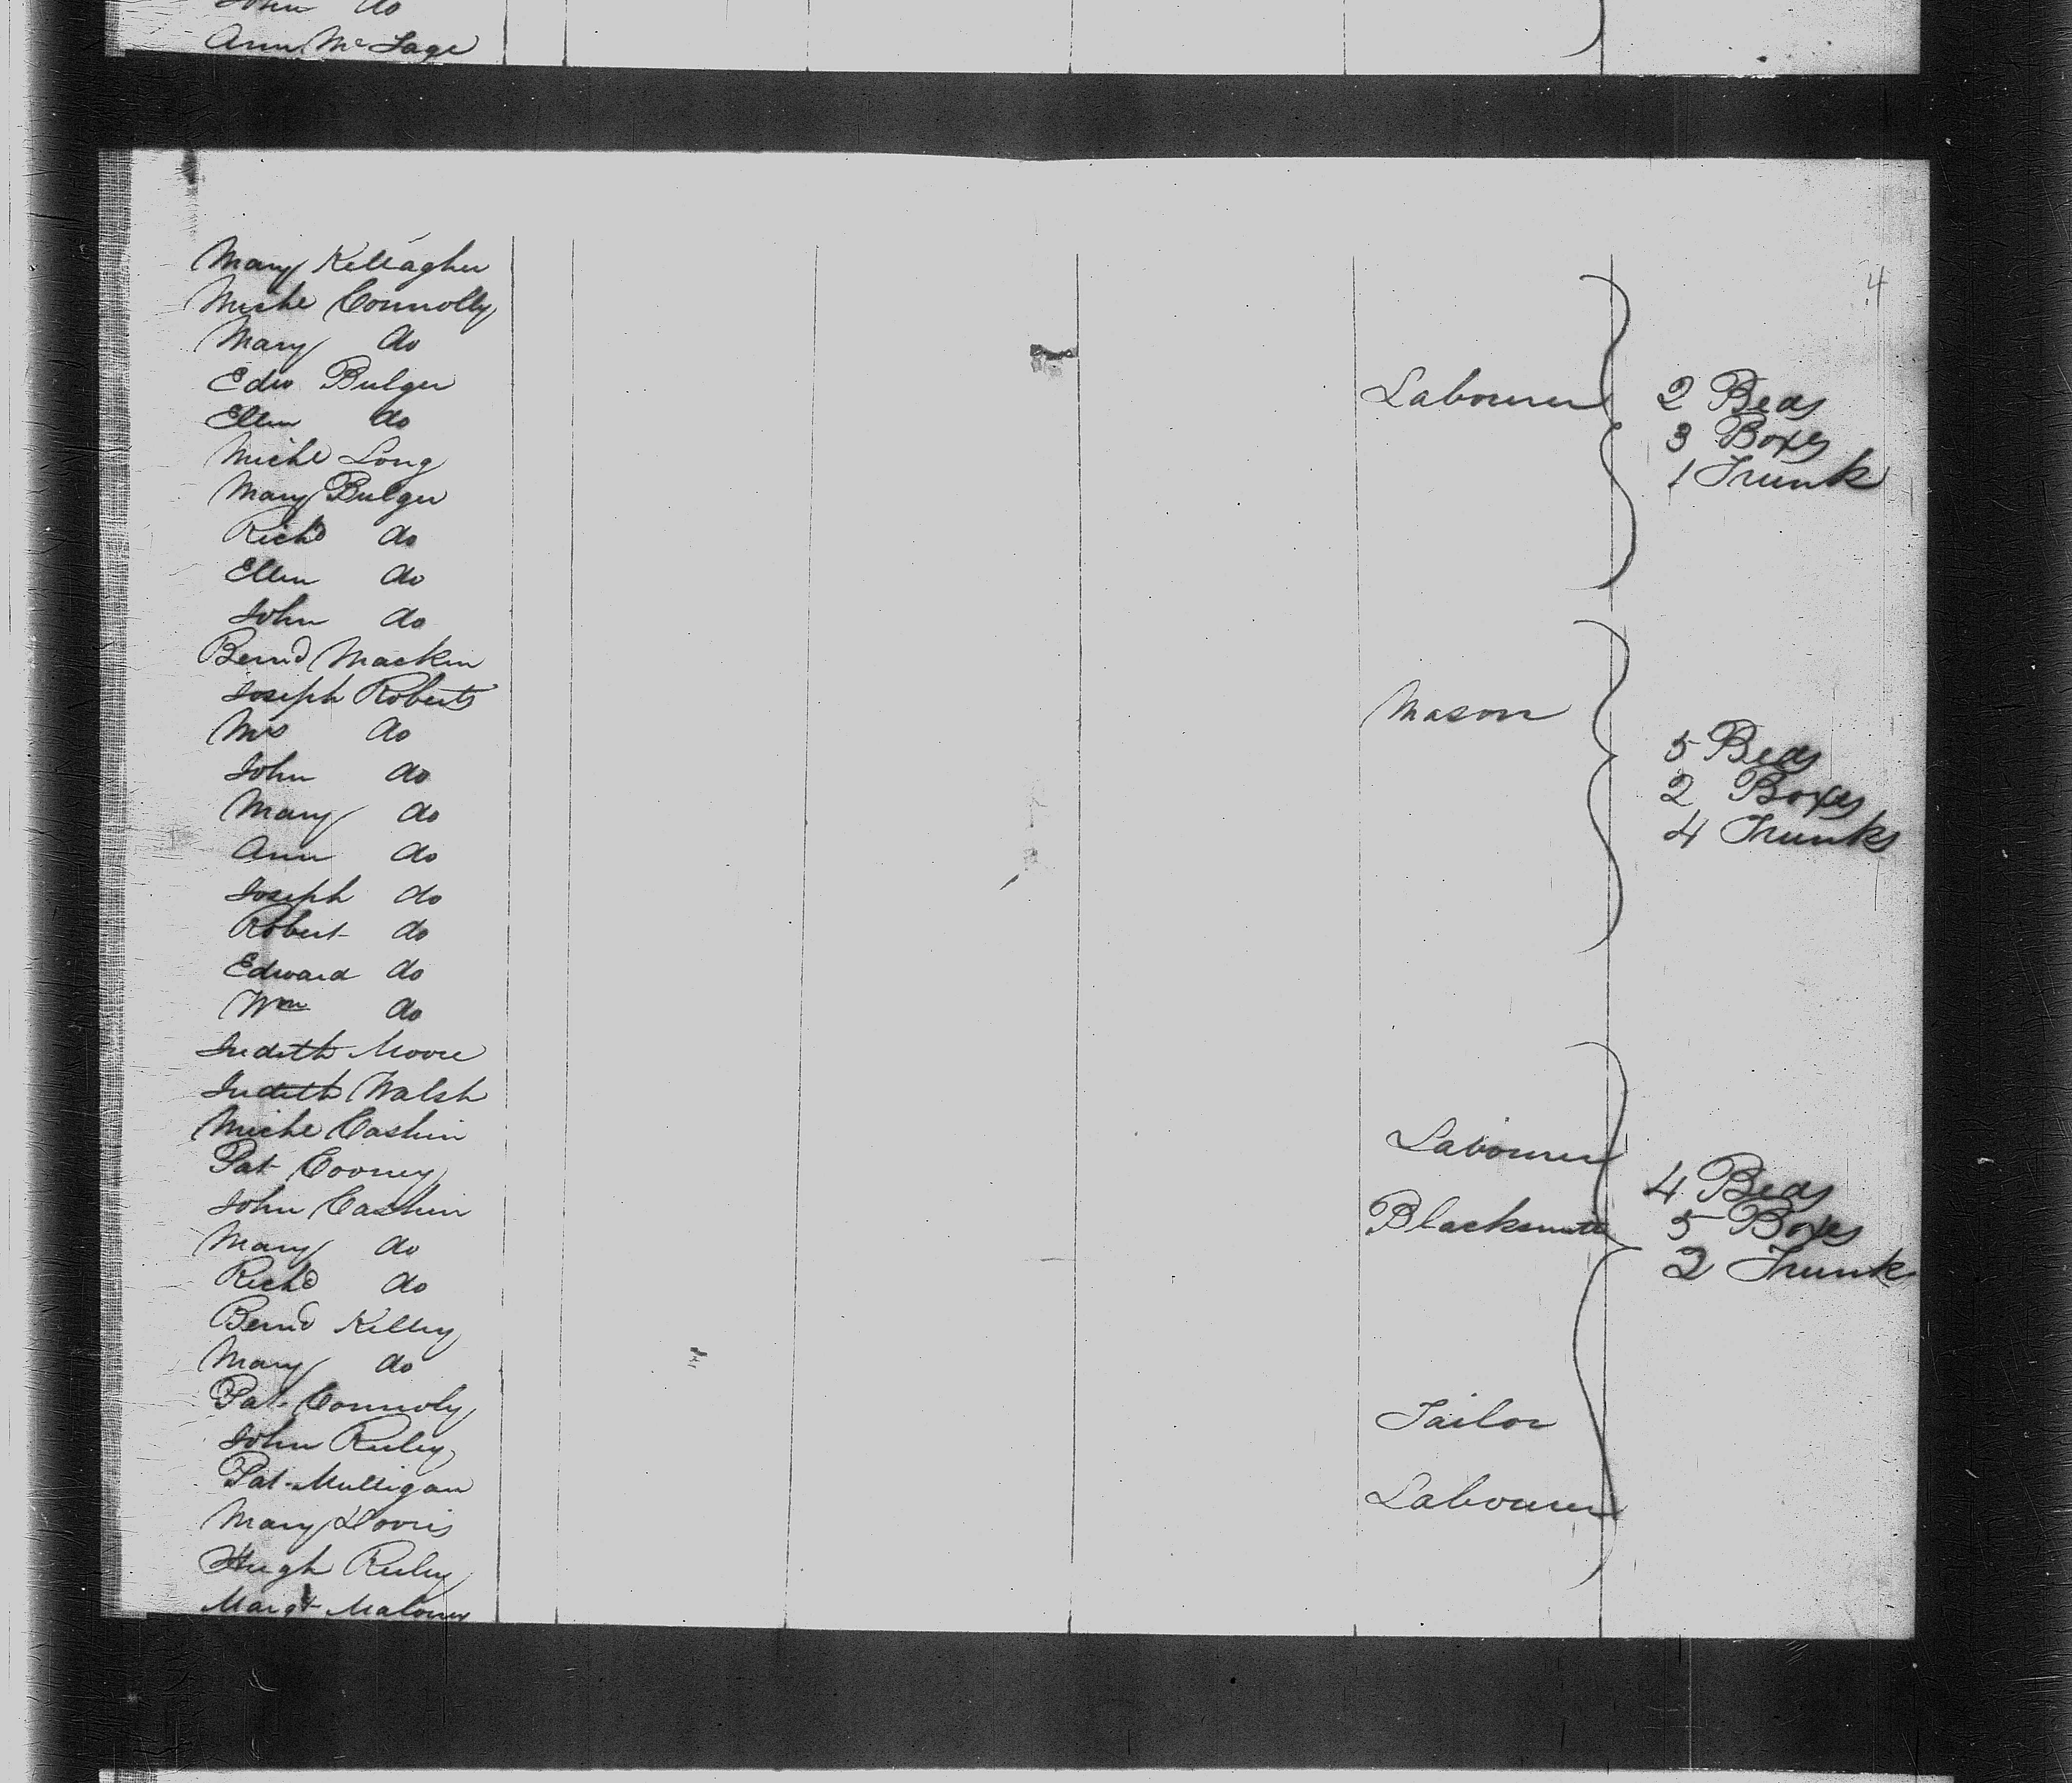 John do
Ann Mc Lage
4
Mary Kellagher
Miche Connolly
Mary do
Edw Bulger Labourer 2 Beds
Ellen do 3 Boxes
Miche Long 1 Trunk
Mary Bulger
Richd do
Ellen do
John do
Bernd Mackin
Joseph Roberts Mason
Mrs do
John do 5 Beds
Mary do 2 Boxes
Ann do 4 Trunks
Joseph do
Robert do
Edward do
Wm do
Judith Moore
Judith Walsh
Miche Cashin Labourer
Pat Cooney 4 Beds
John Cashin Blacksmith 5 Boxes
Mary do 2 Trunk
Richd do
Bernd Kelley
Mary do
Pat Connoly Tailor
John Reiley
Pat Mulligan Labourer
Mary
Hugh Reiley
Margt Maloney